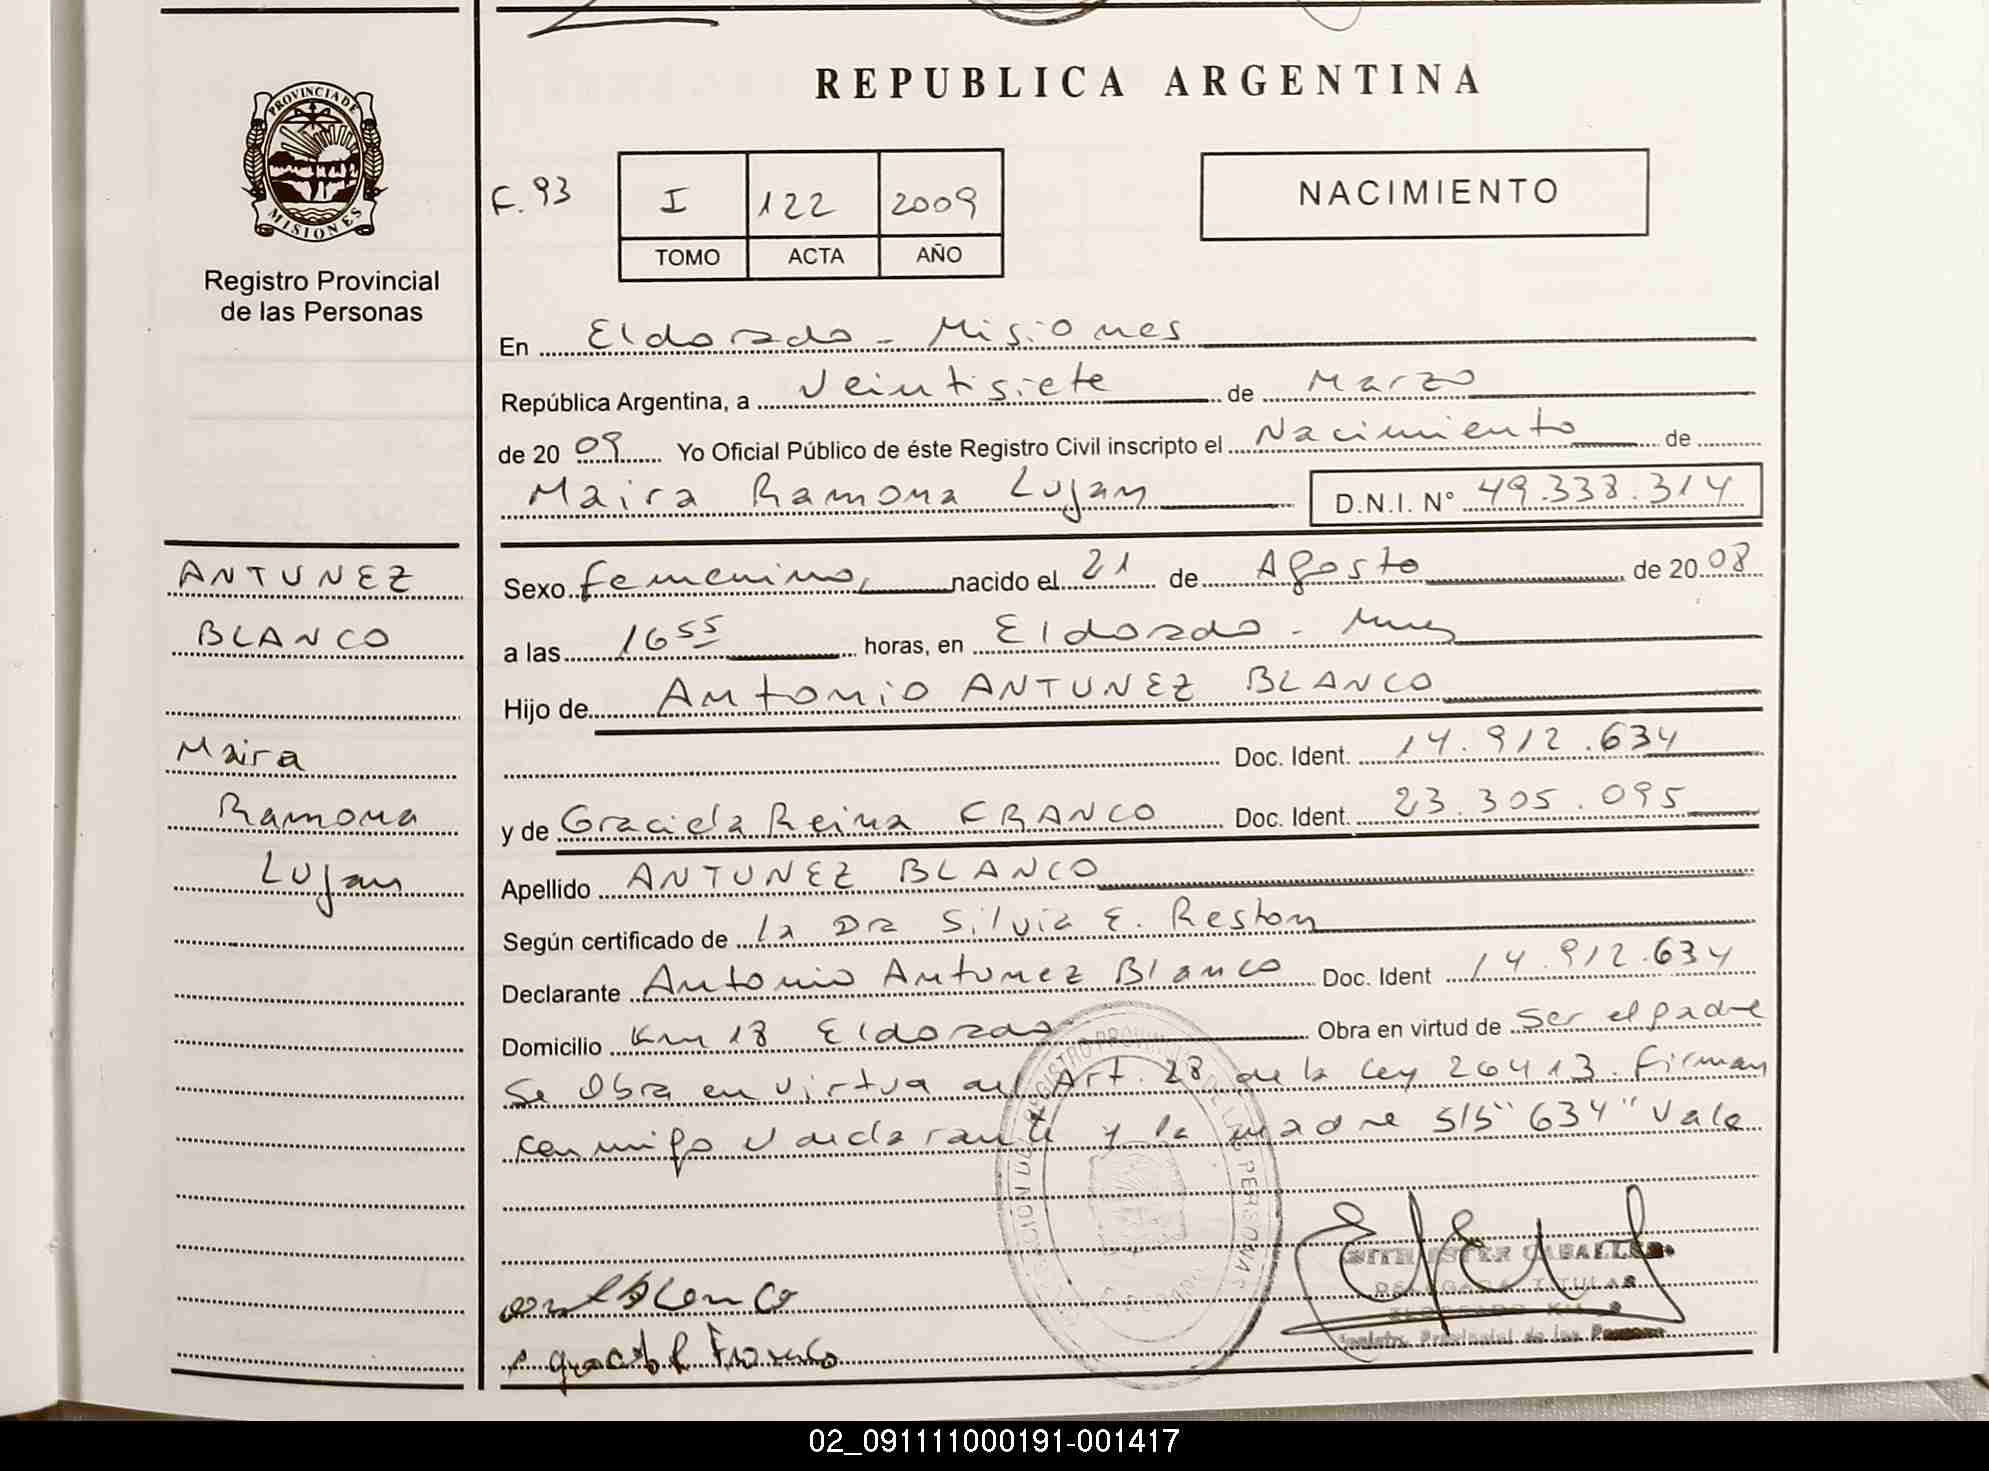 REPUBLICA ARGENTINA
PROVINCIA DE
MISIONES
Registro Provincial
de las Personas
F. 93
I 122 2009
TOMO ACTA AÑO
NACIMIENTO
En Eldorado - Misiones
República Argentina, a Veintisiete de Marzo
de 20 09 Yo Oficial Público de éste Registro Civil inscripto el Nacimiento de
Maira Ramona Lujan D.N.I. N° 49.338.314
ANTUNEZ
BLANCO
Maira
Ramona
Lujan
Sexo femenino, nacido el 21 de Agosto de 20 08
a las 16 55 horas, en Eldorado - Mnes
Hijo de Antonio ANTUNEZ BLANCO
Doc. Ident. 14.912.634
y de Graciela Reina FRANCO Doc. Ident. 23.305.095
Apellido ANTUNEZ BLANCO
Según certificado de la Dra Silvia E. Reston
Declarante Antonio Antunez Blanco Doc. Ident 14.912.634
Domicilio Km 18 Eldorado Obra en virtud de ser el padre
Se Obra en virtud del Art. 28 de la Ley 26413. Firman
conmigo el declarante y la madre S/S "634" Vale
Blanco
Franco
CABALLERO
TITULAR
Registro Provincial de las Personas
02_091111000191-001417